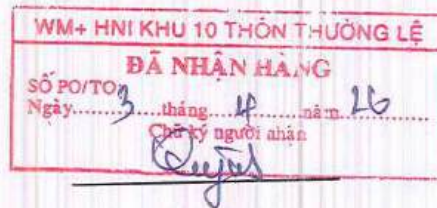 WM+ HNI KHU 10 THÔN THƯỜNG LỆ
ĐÃ NHẬN HÀNG
SỐ PO/TO
Ngày.....3.....tháng.....4.....năm.....26
Chữ ký người nhận